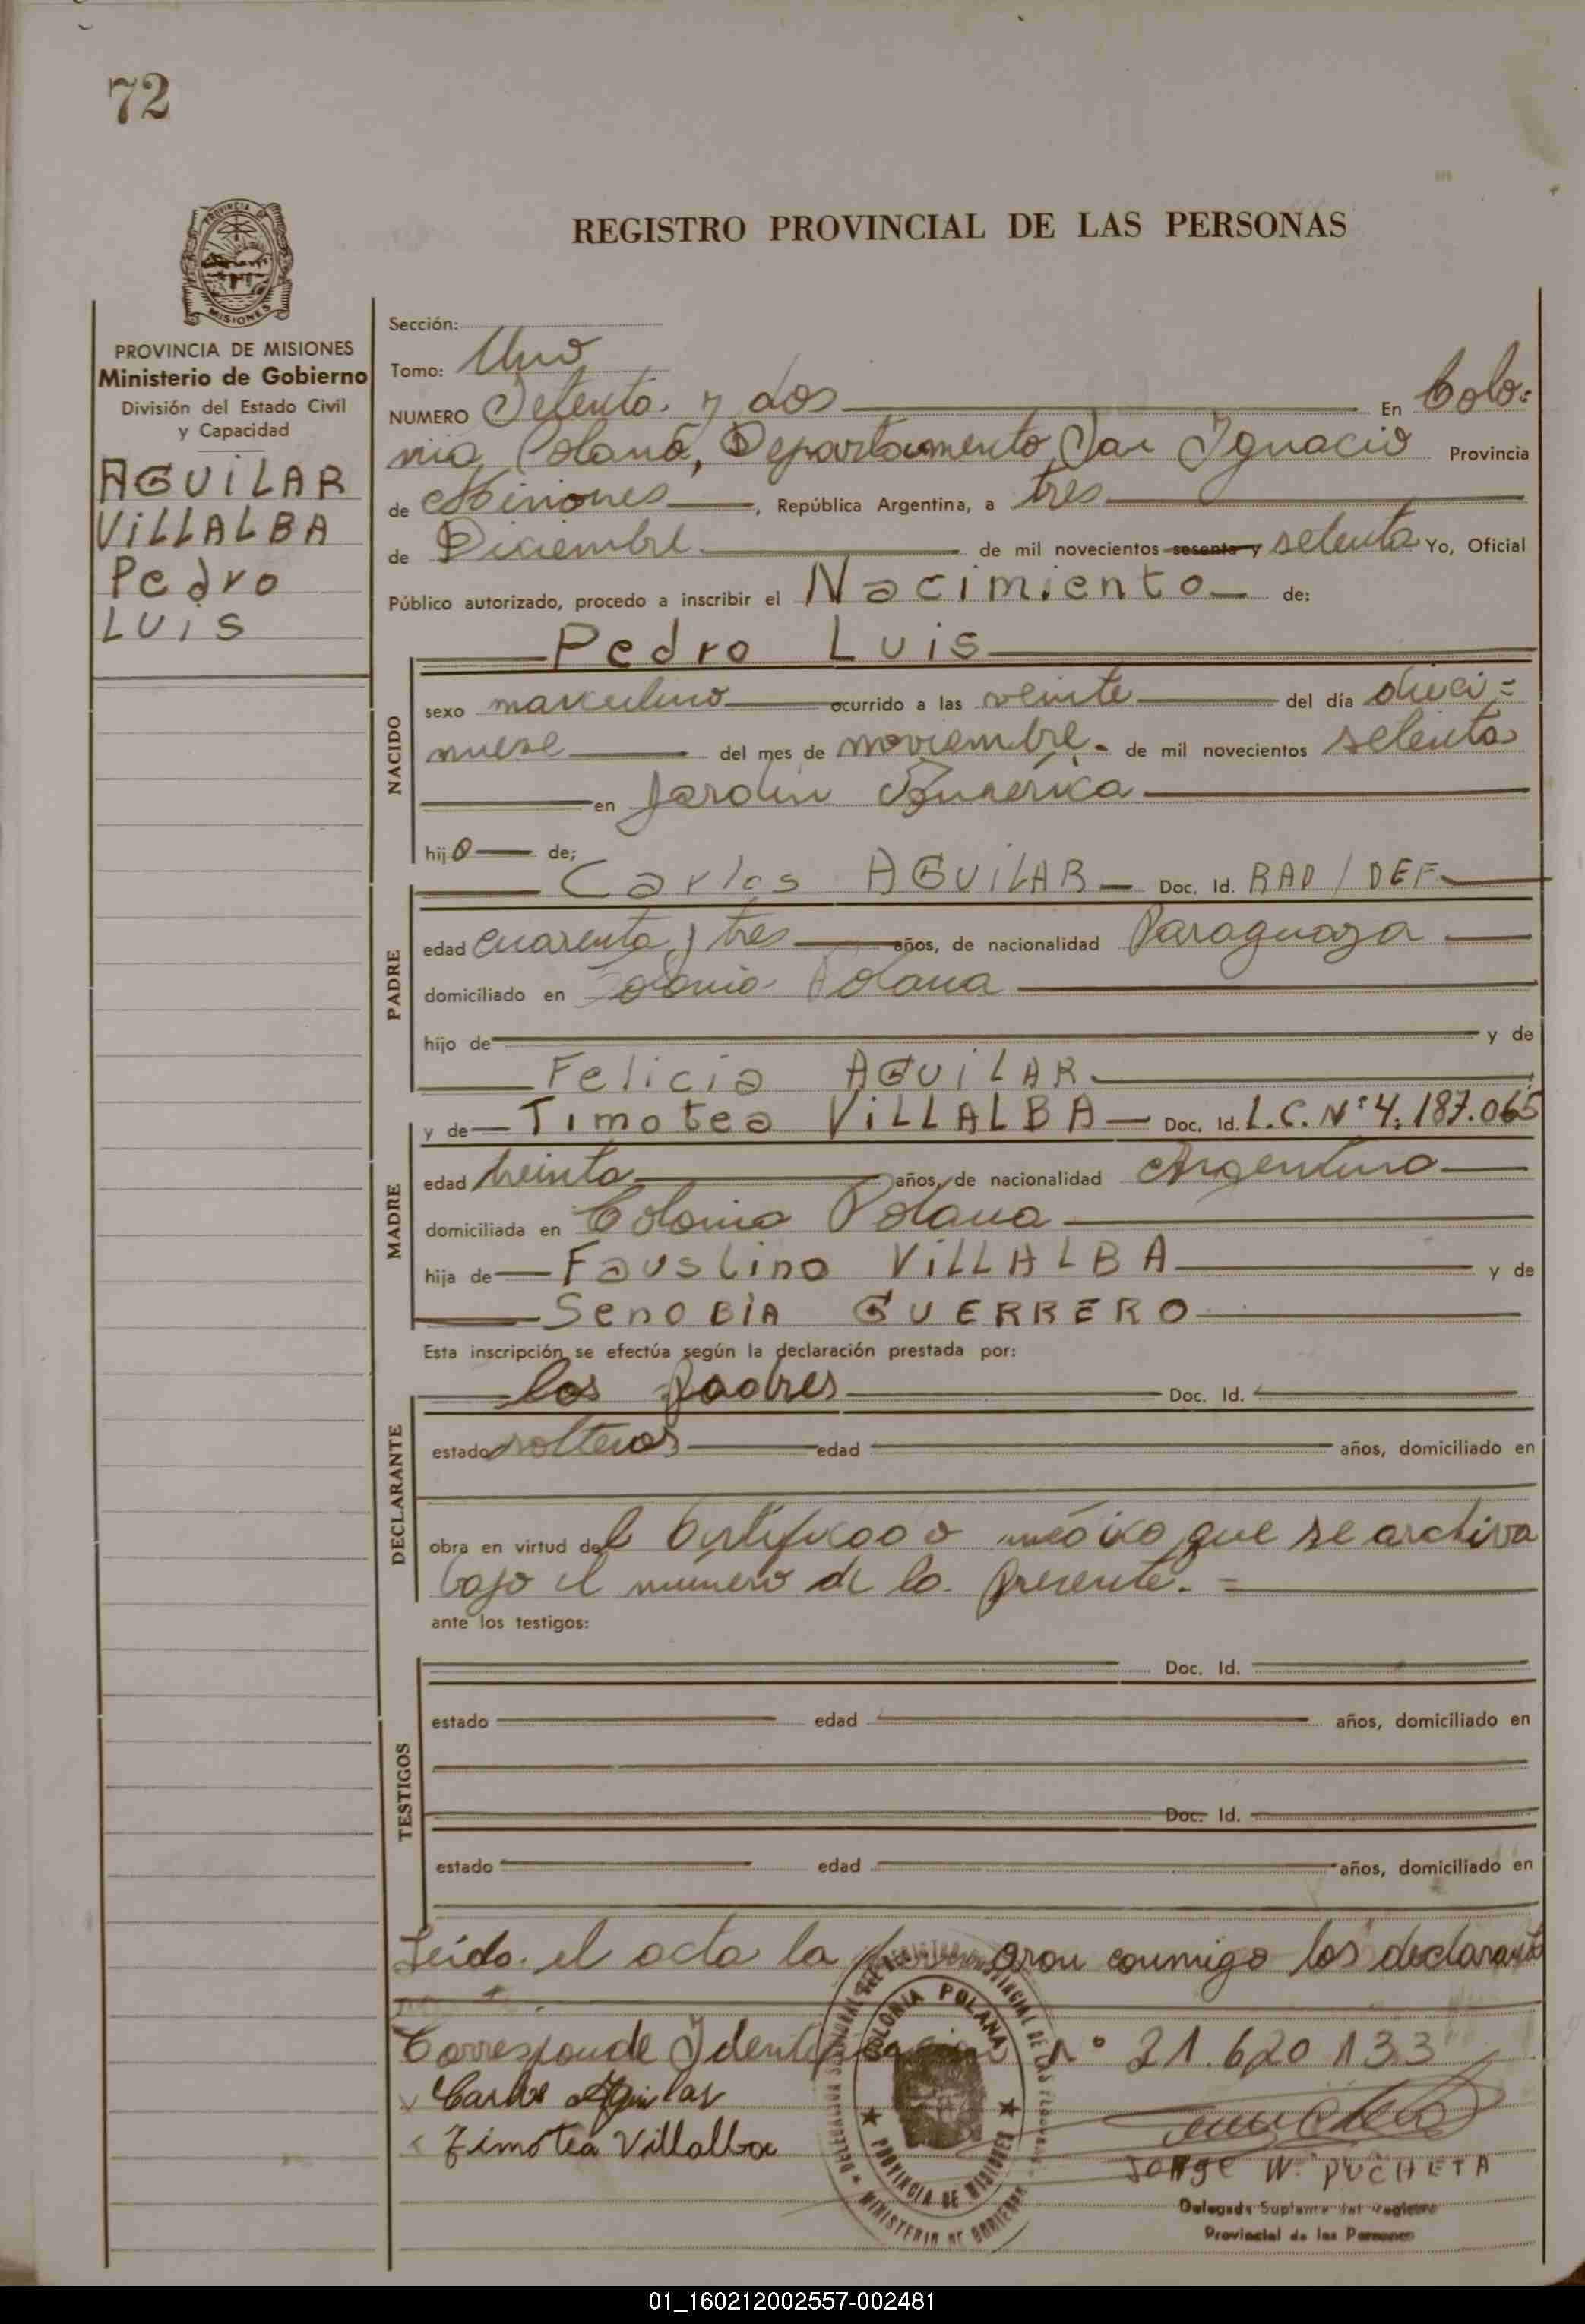 72
REGISTRO PROVINCIAL DE LAS PERSONAS
PROVINCIA DE
MISIONES
PROVINCIA DE MISIONES
Ministerio de Gobierno
División del Estado Civil
y Capacidad
AGUiLAR
ViLLALBA
Pedro
LUIS
Sección:
Tomo: Uno
NUMERO Setenta y dos En Colo=
nia Polana, Departamento San Ignacio Provincia
de Misiones, República Argentina, a tres
de Diciembre de mil novecientos sesenta y setenta Yo, Oficial
Público autorizado, procedo a inscribir el Nacimiento de:
Pedro Luis
NACIDO
sexo masculino ocurrido a las veinte del día dieci=
nueve del mes de noviembre de mil novecientos setenta
en Jardín América
hijo de:
Carlos AGUiLAR Doc. Id. RAD/DEF
PADRE
edad cuarenta y tres años, de nacionalidad Paraguaya
domiciliado en Colonia Polana
hijo de y de
Felicia AGUiLAR
y de Timotea ViLLALBA Doc. Id. L.C. Nº 4.187.065
MADRE
edad treinta años, de nacionalidad Argentina
domiciliada en Colonia Polana
hija de Faustino ViLLALBA y de
SenoBiA GUERRERO
Esta inscripción se efectúa según la declaración prestada por:
los padres Doc. Id.
DECLARANTE
estado solteros edad años, domiciliado en
obra en virtud del Certificado médico que se archiva
bajo el número de la presente. =
ante los testigos:
TESTIGOS
Doc. Id.
estado edad años, domiciliado en
Doc. Id.
estado edad años, domiciliado en
Leída el acta la conmigo los declarant
Corresponde Identificación Nº 21.620133
Carlos Aguilar
Timotea Villalba
COLONIA POLANA
PROVINCIA DE MISIONES
MINISTERIO DE GOBIERNO
JORge W. PUCHETA
Delegado Suplente del Registro
Provincial de las Personas
01_160212002557-002481